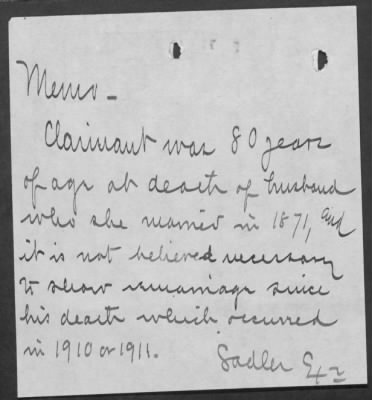 Memo -
Claimant was 80 years
of age at death of husband
who she married in 1871, and
it is not believed necessary
to show remarriage since
his death which occurred
in 1910 or 1911.
Sadler Exr